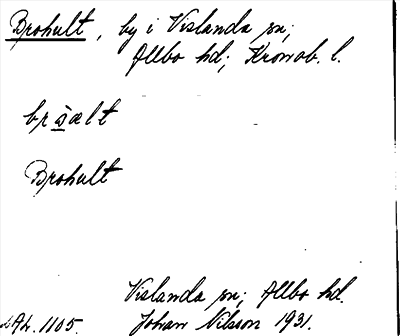 Brohult, by i Vislanda sn;
Allbo hd; Kronob. l.
Brohult
Vislanda sn; Allbo hd.
Johan Nilson 1931.